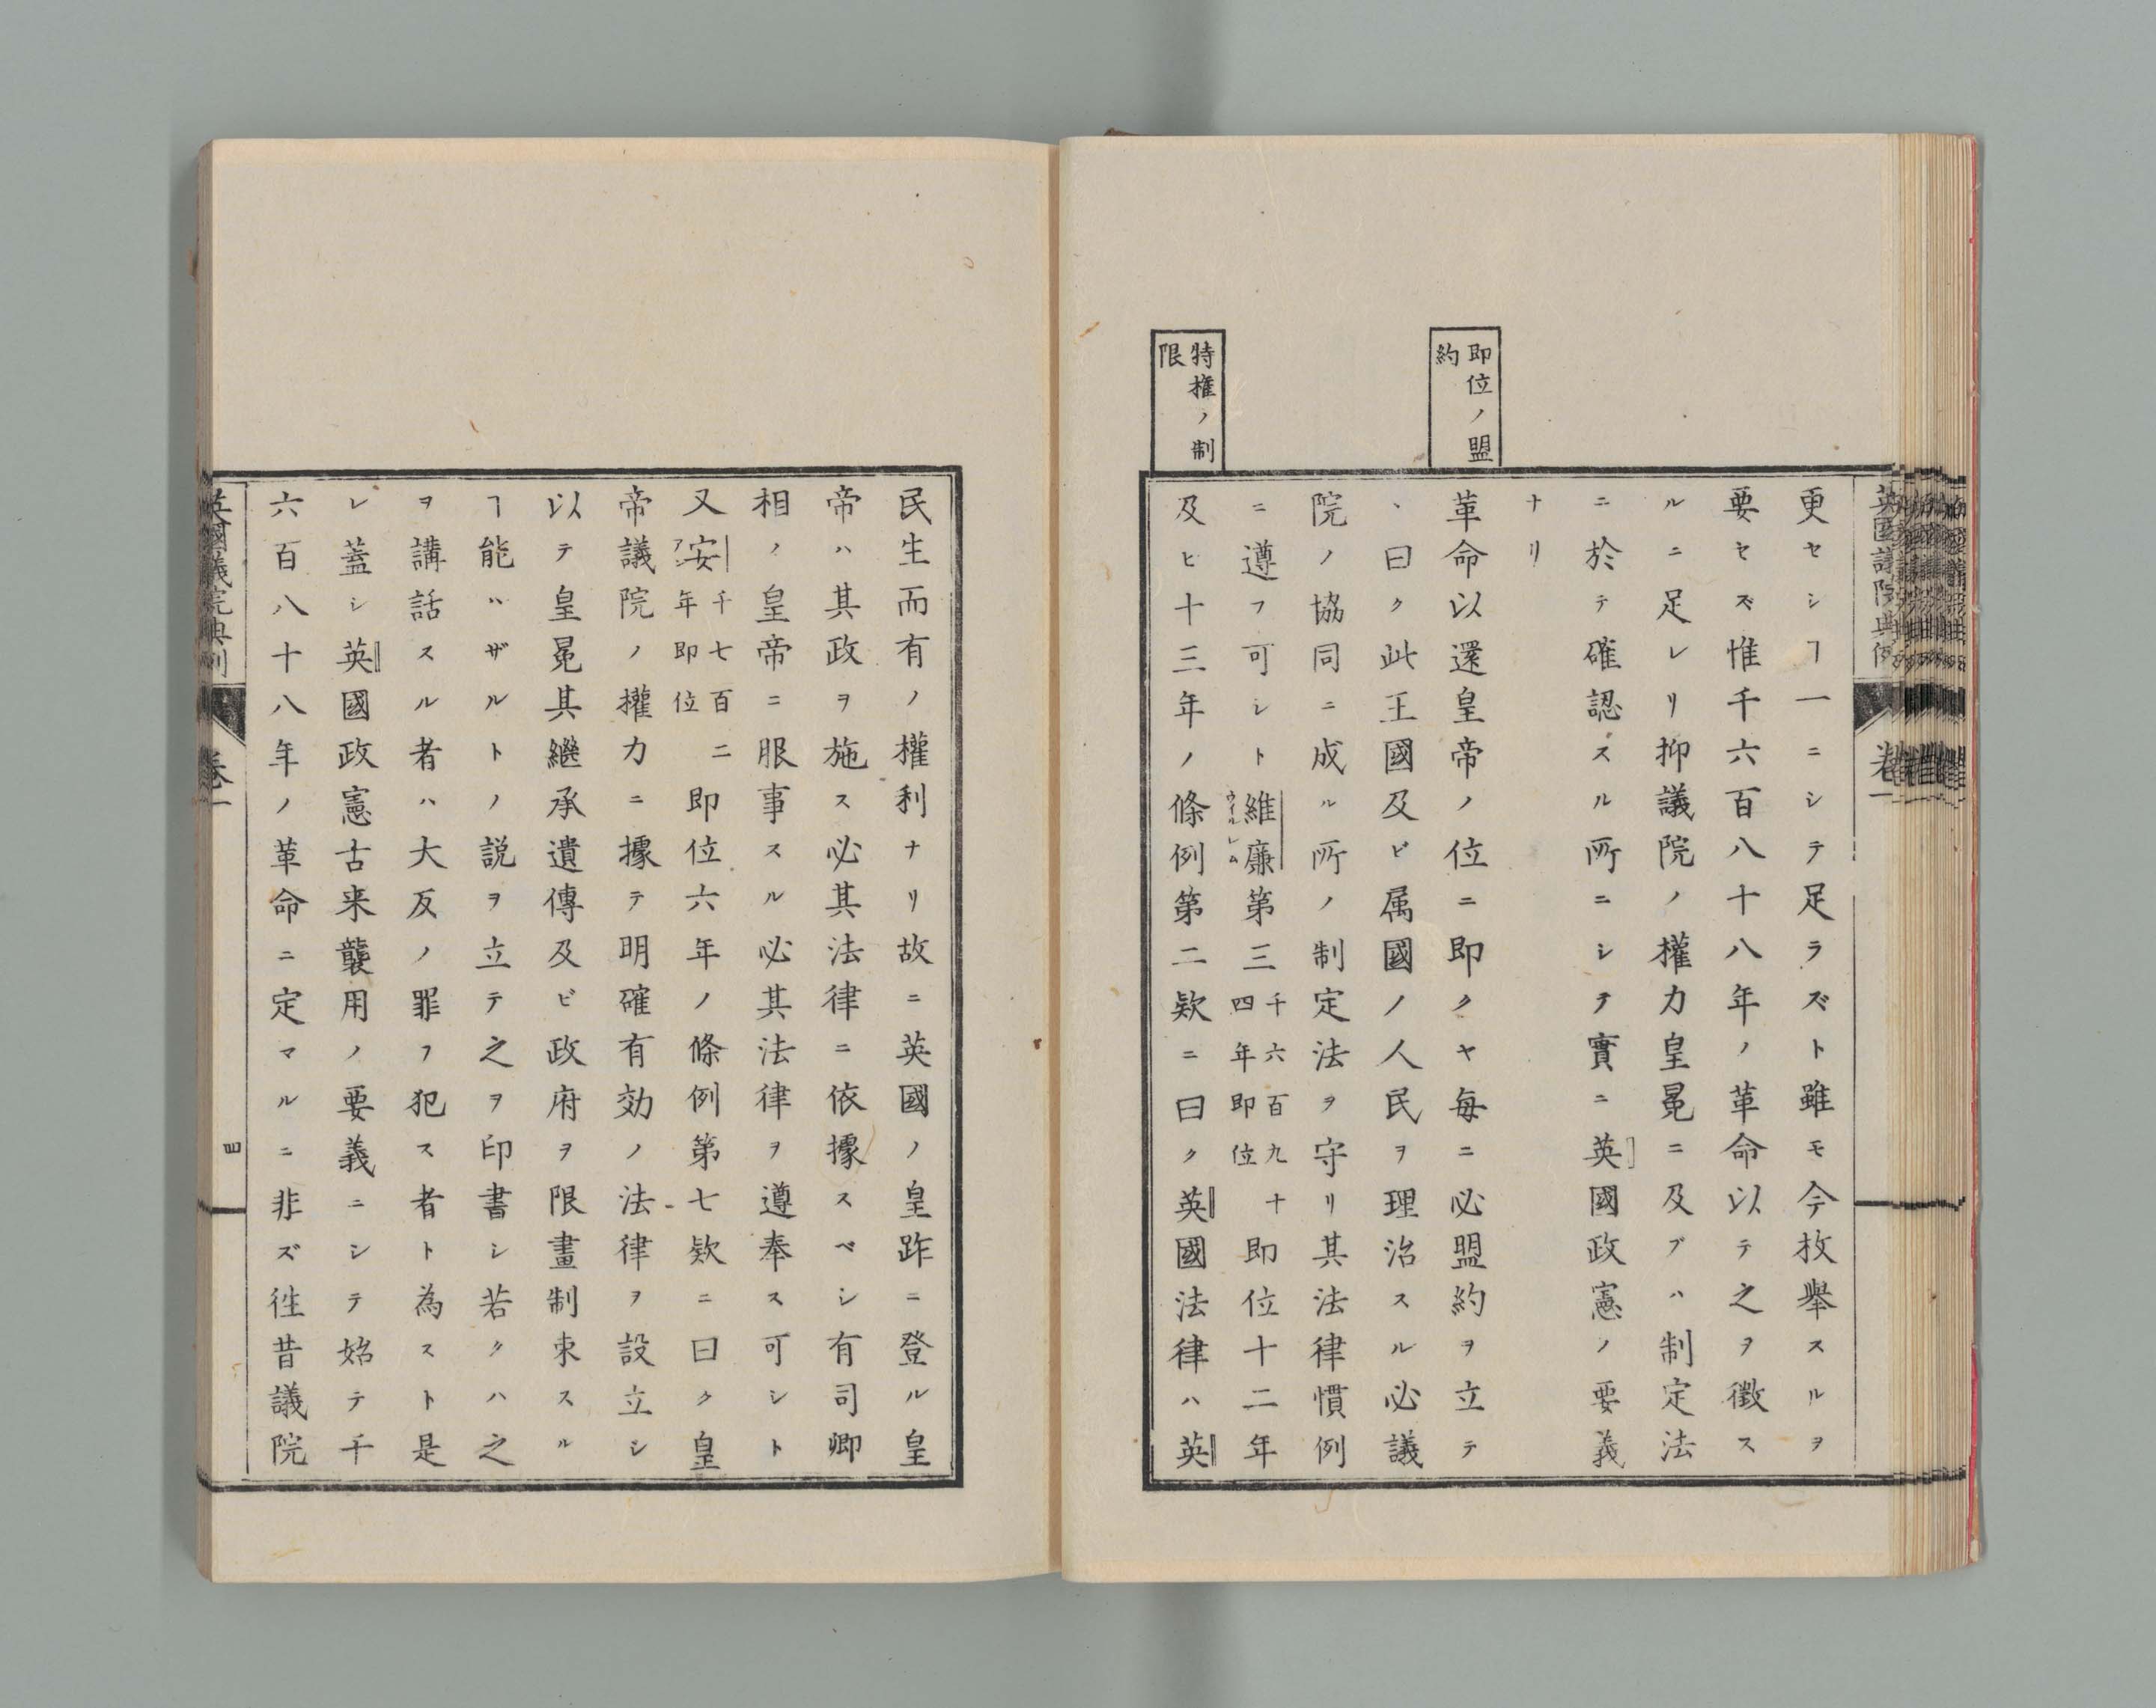 英國議院典例
卷一
即位ノ盟
約
特權ノ制
限
更セシヿ一ニシテ足ラズト雖モ今枚舉スルヲ
要セズ惟千六百八十八年ノ革命以テ之ヲ徴ス
ルニ足レリ抑議院ノ權力皇冕ニ及ブハ制定法
ニ於テ確認スル所ニシテ實ニ英國政憲ノ要義
ナリ
革命以還皇帝ノ位ニ即クヤ毎ニ必盟約ヲ立テ
、曰ク此王國及ビ属國ノ人民ヲ理治スル必議
院ノ協同ニ成ル所ノ制定法ヲ守リ其法律慣例
ニ遵フ可シト維廉ウイルレム第三千六百九十四年即位即位十二年
及ヒ十三年ノ條例第二欵ニ曰ク英國法律ハ英
民生而有ノ權利ナリ故ニ英國ノ皇跓ニ登ル皇
帝ハ其政ヲ施ス必其法律ニ依據スベシ有司卿
相ノ皇帝ニ服事スル必其法律ヲ遵奉ス可シト
又安アン千七百二年即位即位六年ノ條例第七欵ニ曰ク皇
帝議院ノ權力ニ據テ明確有効ノ法律ヲ設立シ
以テ皇冕其繼承遺傳及ビ政府ヲ限畫制束スル
ヿ能ハザルトノ説ヲ立テ之ヲ印書シ若クハ之
ヲ講話スル者ハ大反ノ罪フ犯ス者ト為スト是
レ蓋シ英國政憲古来襲用ノ要義ニシテ始テ千
六百八十八年ノ革命ニ定マルニ非ズ徃昔議院
英國議院典例
卷一
四